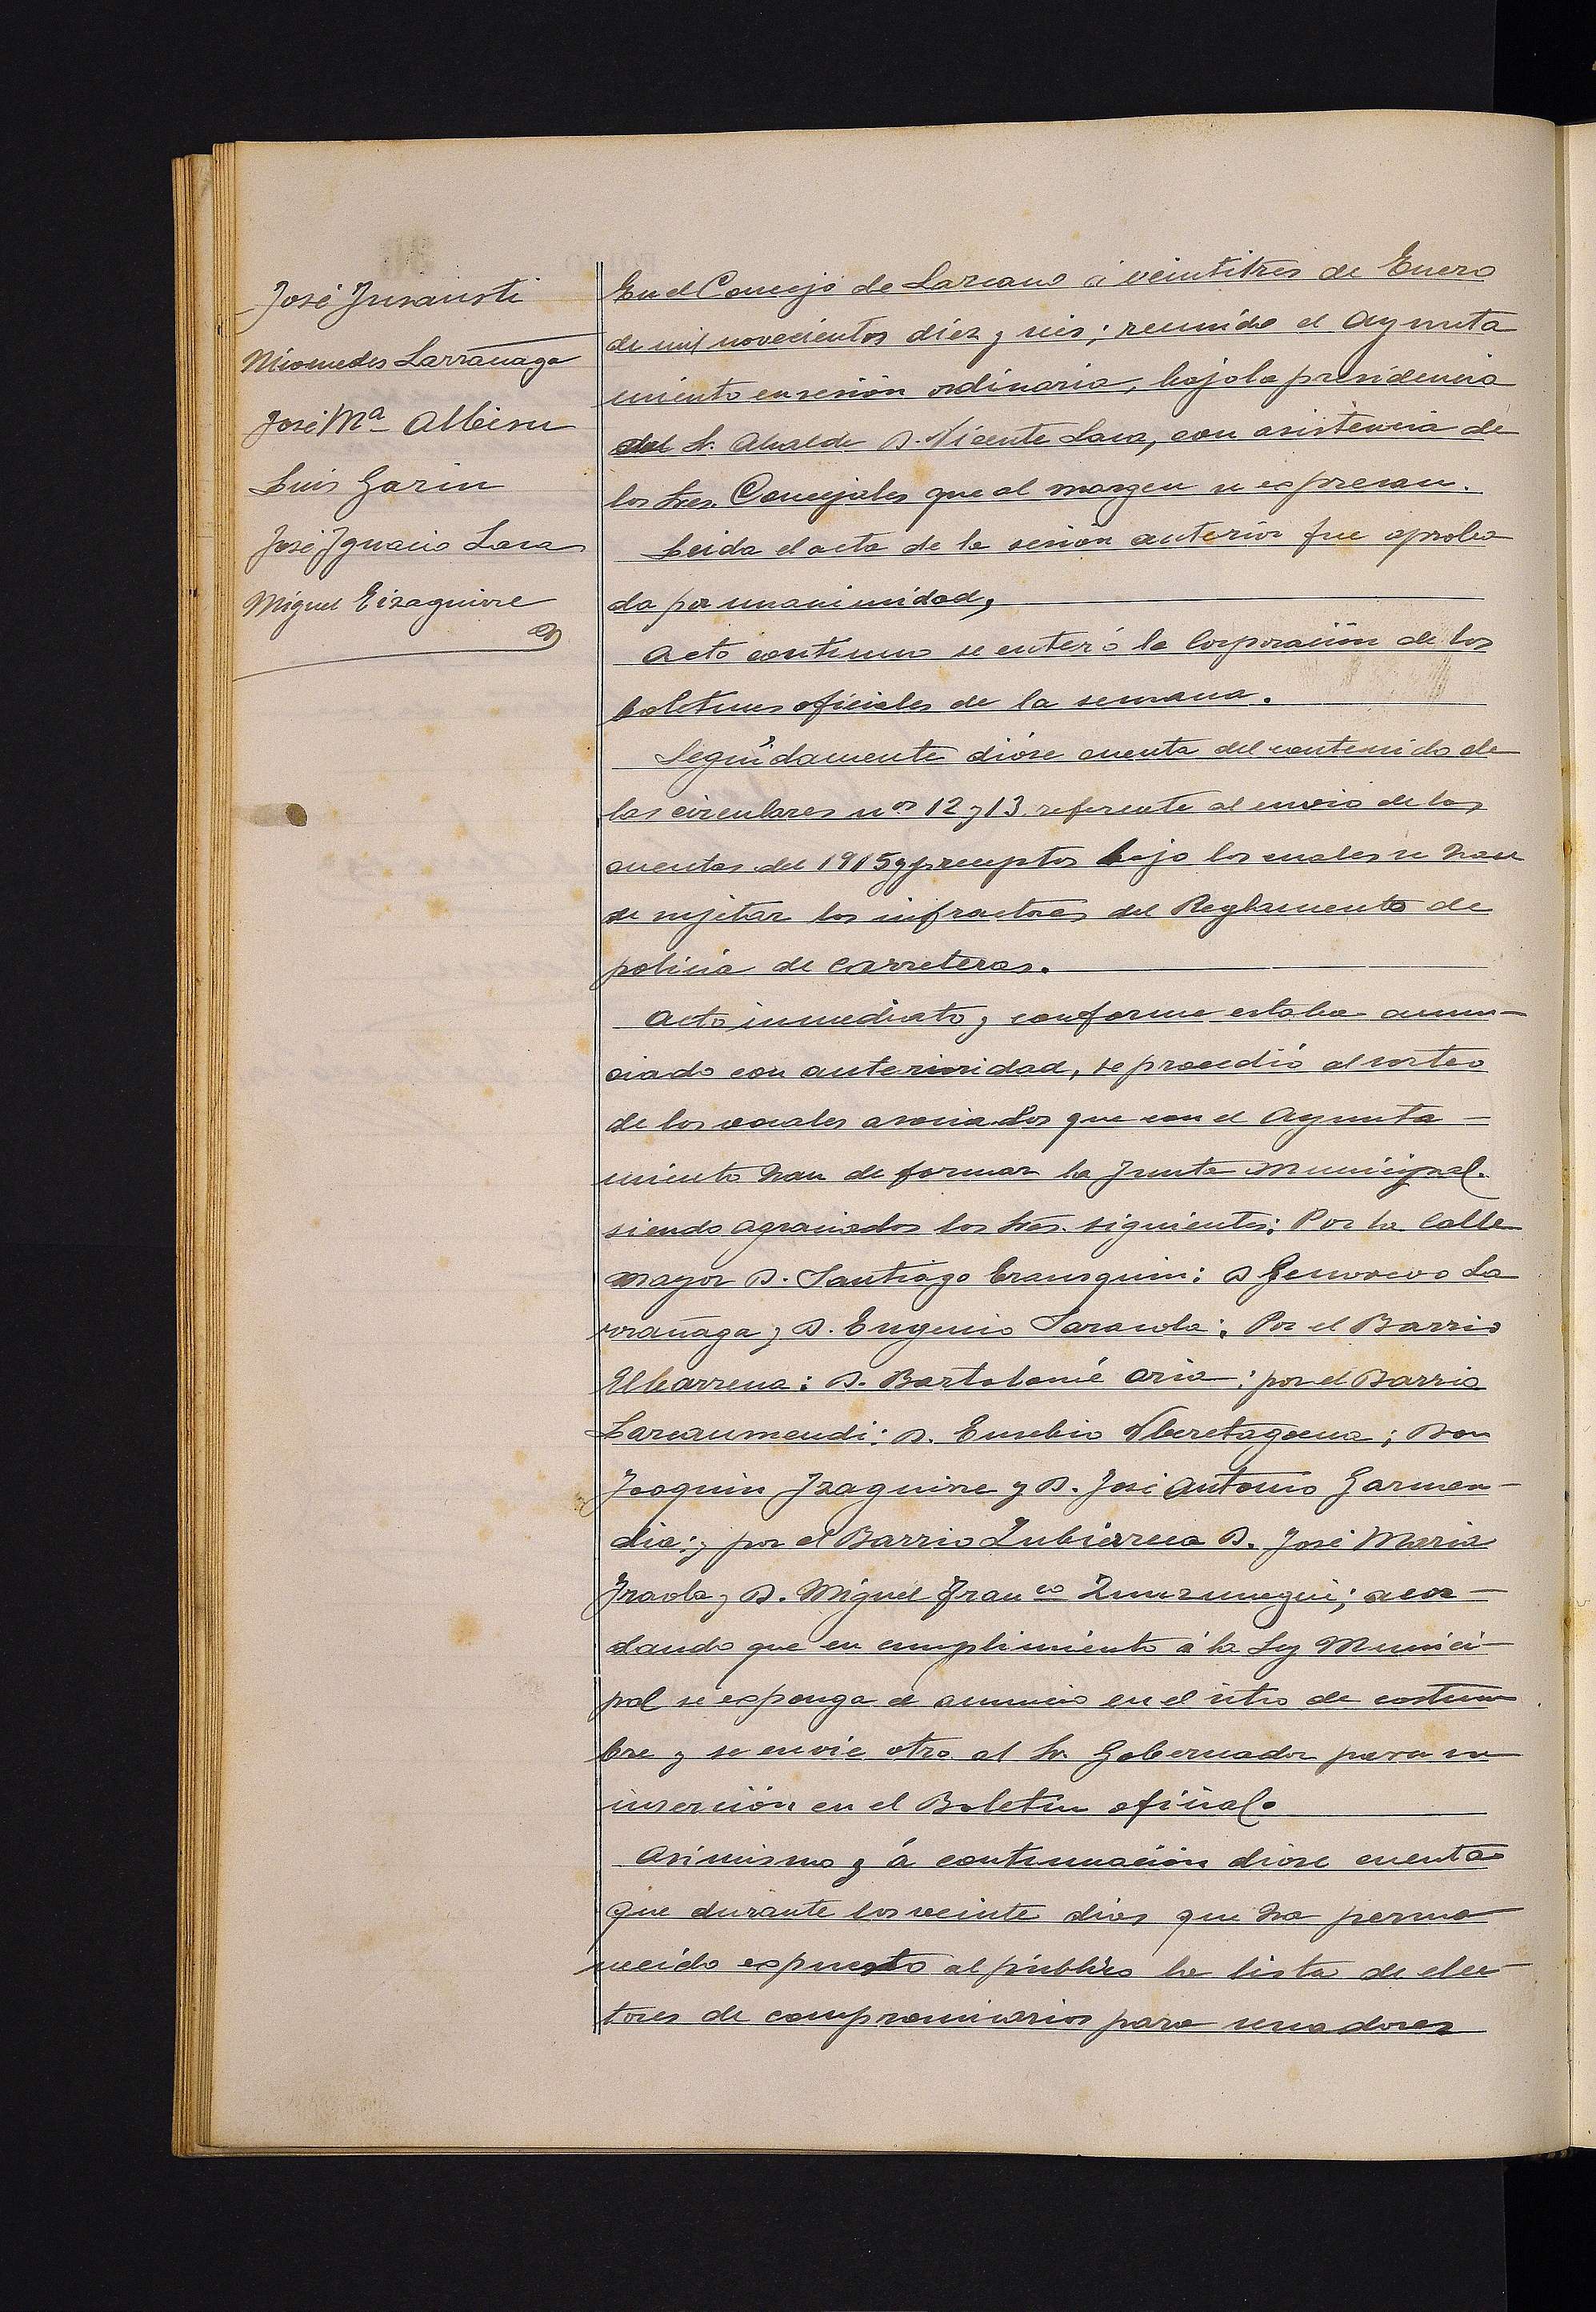 José Insausti
Nicomedes Larrañaga
José Mª Albisu
Luis Garin
José Ygnacio Lasa
Miguel Eizaguirre
En el Concejo de Lazcano á veintitres de Enero
de mil novecientos diez y seis; reunido el Ayunta
miento en sesión ordinaria, bajo la presidencia
del Sr. Alcalde D. Vicente Lasa, con asistencia de
los Sres. Concejales que al margen se expresan.
Leida el acta de la sesión anterior fue aproba
da por unanimidad,
Acto continuo se enteró la Corporación de los
boletines oficiales de la semana.
Seguidamente dióse cuenta del contenido de
las circulares nos 12 y 13 referente al envio de las
cuentas del 1915 y preceptos bajo los cuales se han
de sujetar los infractores del Reglamento de
policia de carreteras.
Acto inmediato y conforme estaba anun-
ciado con anterioridad, se procedió al sorteo
de los vocales asociados que con el Ayunta-
miento han de formar la Junta Municipal.
siendo agraciados los Sres. siguientes: Por la Calle
mayor D. Santiago Erausquin: D Genovevo La
rrañaga y D. Eugenio Sarasola: Por el Barrio
Elbarrena: D. Bartolomé Oria: por el Barrio
Lazcaumendi: D. Eusebio Uberetagoena; Don
Joaquin Izaguirre y D. José Antonio Garmen-
dia: y por el Barrio Zubierreca D. José Maria
Iraola y D. Miguel Franco Zunzunegui; acor-
dando que en cumplimiento á la Ley Munici-
pal se exponga el anuncio en el sitio de costum
bre y se envie otro al Sr. Gobernador para su
inserción en el Boletin oficial.
Asimismo y á continuación dióse cuenta
que durante los veinte dias que ha perma
necido expuesto al público la lista de elec-
tores de compromisarios para senadores